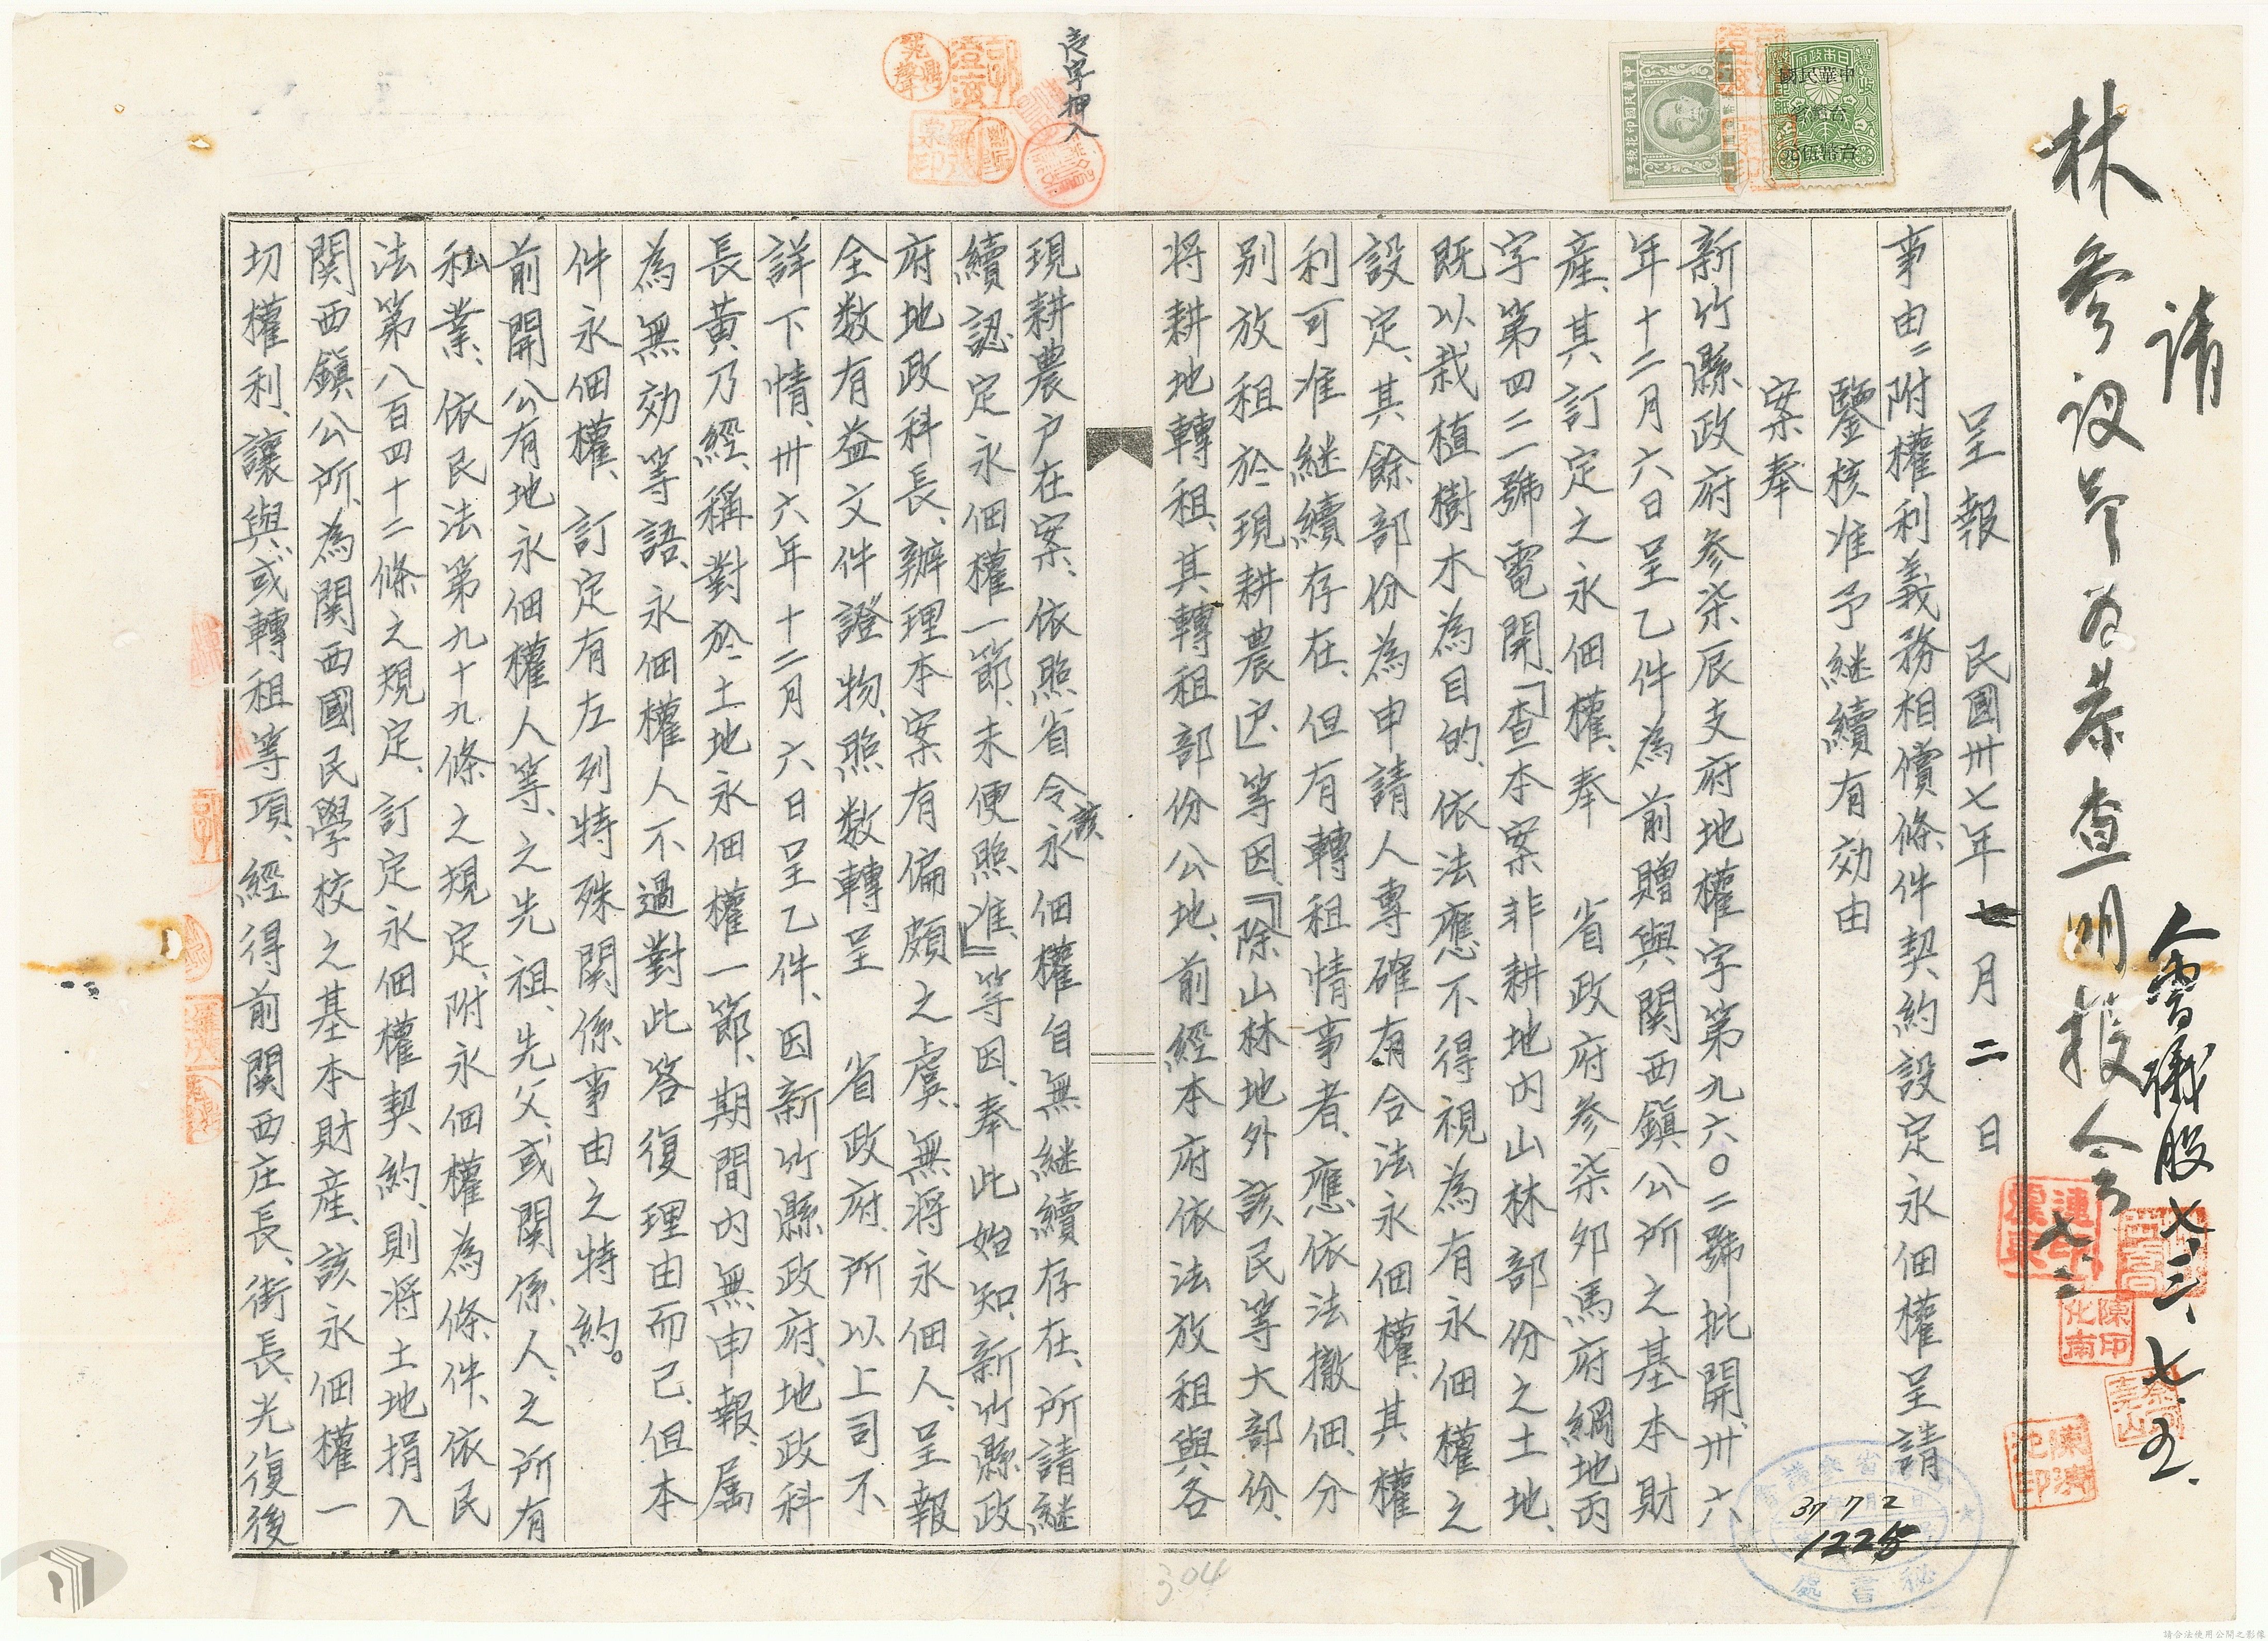 請
林參議員為恭查明核会
人書議股 七、三、
七、五、
七、三
呈報　民國卅七年七月二日
事由：附權利義務相償條件契約設定永佃權呈請
鑒核准予継續有効由
案奉
新竹縣政府參柒辰支府地權字第九六〇二號批開、卅六
年十二月六日呈乙件為前贈與関西鎮公所之基本財
產、其訂定之永佃權、奉　省政府參柒卯馬府綱地丙
字第四三二號電開、「查本案非耕地內山林部份之土地、
既以栽植樹木為目的、依法應不得視為有永佃權之
設定、其餘部份為申請人專確有合法永佃權、其權
利可准継續存在、但有轉租情事者、應依法撤佃、分
別放租於現耕農户」等因、『除山林地外該民等大部份、
将耕地轉租、其轉租部份公地、前經本府依法放租與各
現耕農户在案、依照省令該永佃權自無継續存在、所請継
續認定永佃權一節、未便照准、』等因、奉此始知、新竹縣政
府地政科長、辦理本案有偏頗之虞、無将永佃人、呈報
全数有益文件證物、照数轉呈　省政府、所以上司不
詳下情、卅六年十二月六日呈乙件、因新竹縣政府、地政科
長黃乃經、稱對於土地永佃權一節、期間內無申報、属
為無効等語、永佃權人不過對此答復理由而已、但本
件永佃權、訂定有左列特殊関係事由之特約。
前開公有地永佃權人等、之先祖、先父、或関係人、之所有
私業、依民法第九十九條之規定、附永佃權為條件、依民
法第八百四十二條之規定、訂定永佃權契約、則将土地捐入
関西鎮公所、為関西國民學校之基本財產、該永佃權一
切權利、讓與、或轉租等項、經得前関西庄長、街長、光復後
壱字押入
中華民國印花稅票
日本政府
收入印紙
中華民國
台灣省
台幣伍元
陳甲化南
37 7 2
1225
秘書處
304
請合法使用公開之影像